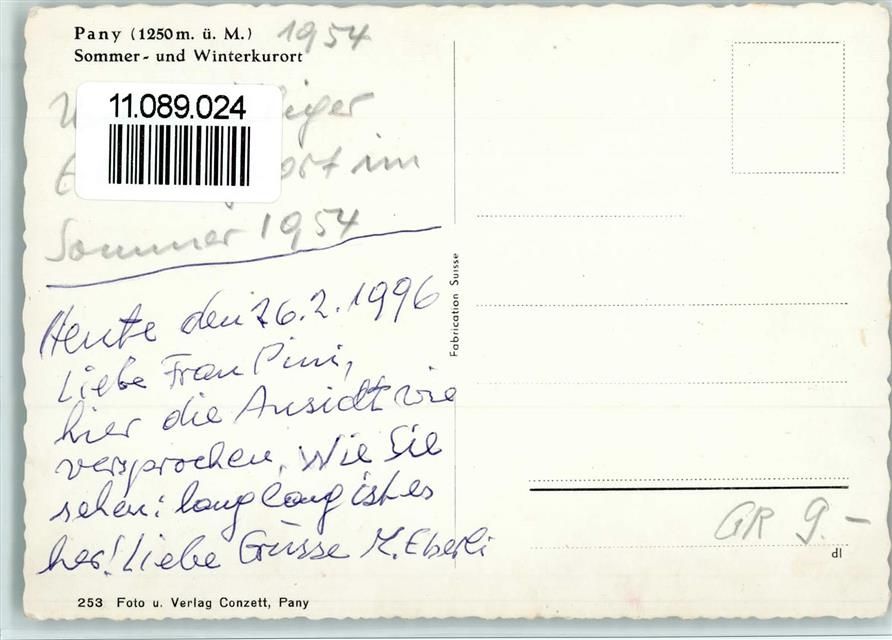 Pany (1250 m. ü. M.) 1954
Sommer- und Winterkurort
11.089.024
im
Sommer 1954
Heute den 26.2.1996
Liebe Frau Pini,
hier die Ansicht wie
versprochen. Wie Sie
sehen: lang lang ist es
her! Liebe Grüsse M. Eberli
Fabrication Suisse
GR 9.-
dl
253 Foto u. Verlag Conzett, Pany